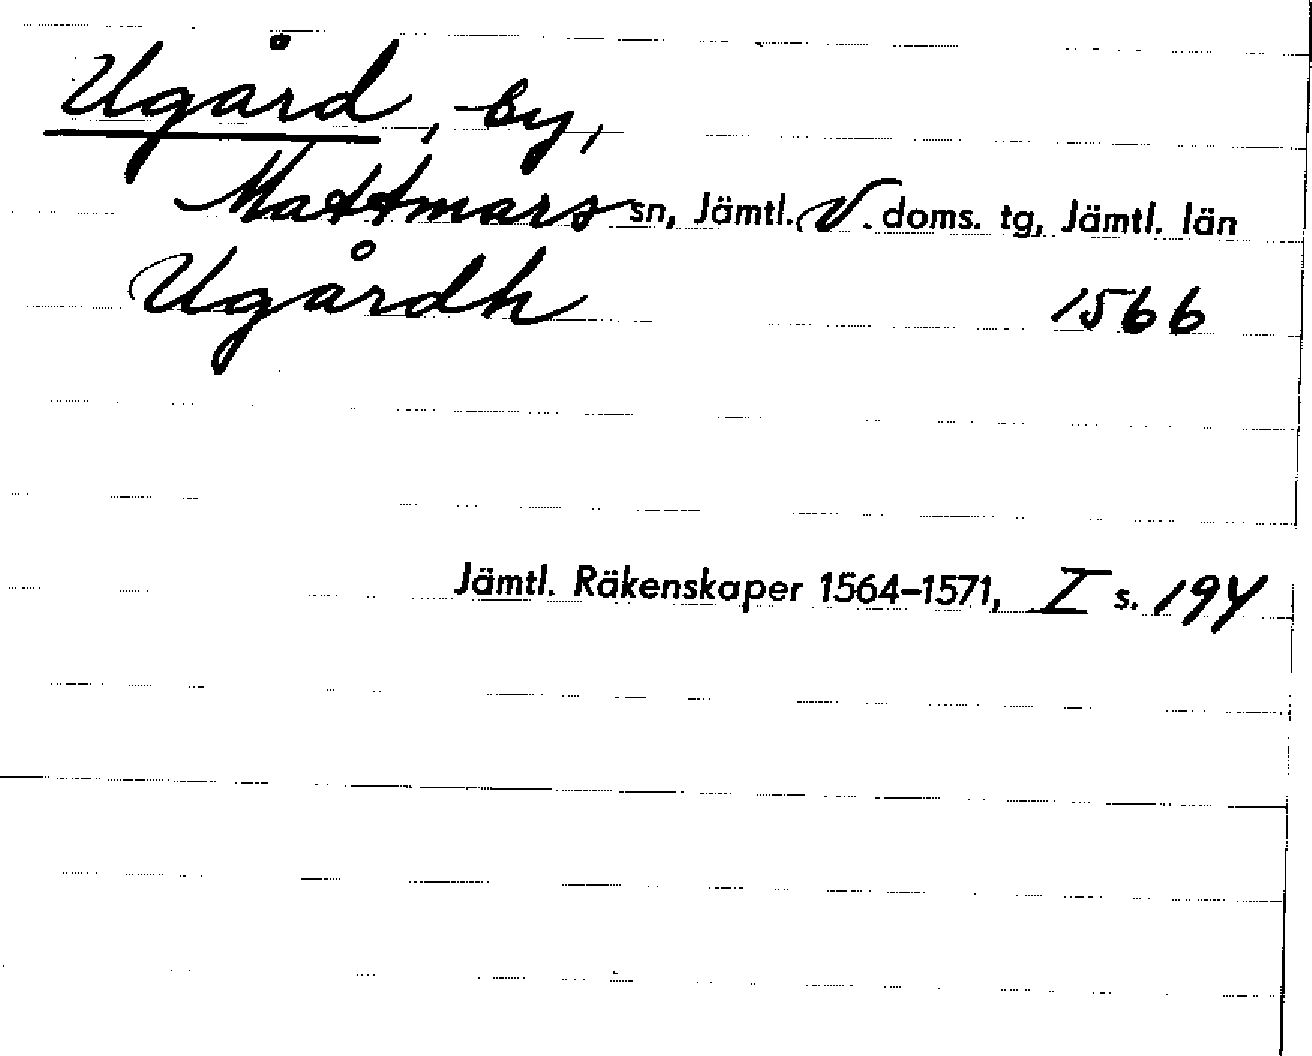 Ugård, by,
Mattmars sn, Jämtl. V. doms. tg, Jämtl. län
Ugårdh 1566
Jämtl. Räkenskaper 1564–1571, I s. 194